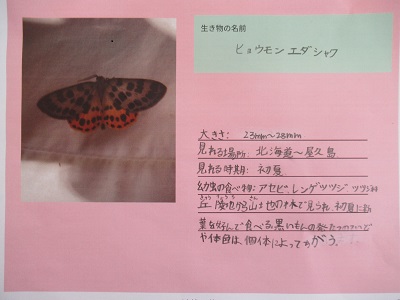 生き物の名前
ヒョウモンエダシャク
大きさ: 23mm〜28mm
見れる場所: 北海道〜屋久島
見れる時期: 初夏
幼虫の食べ物: アセビ、レンゲツツジ
丘陵地から山地の林で見られ、初夏に
葉を好んで食べる。黒いもんの
や体色は、個体によってちがう。